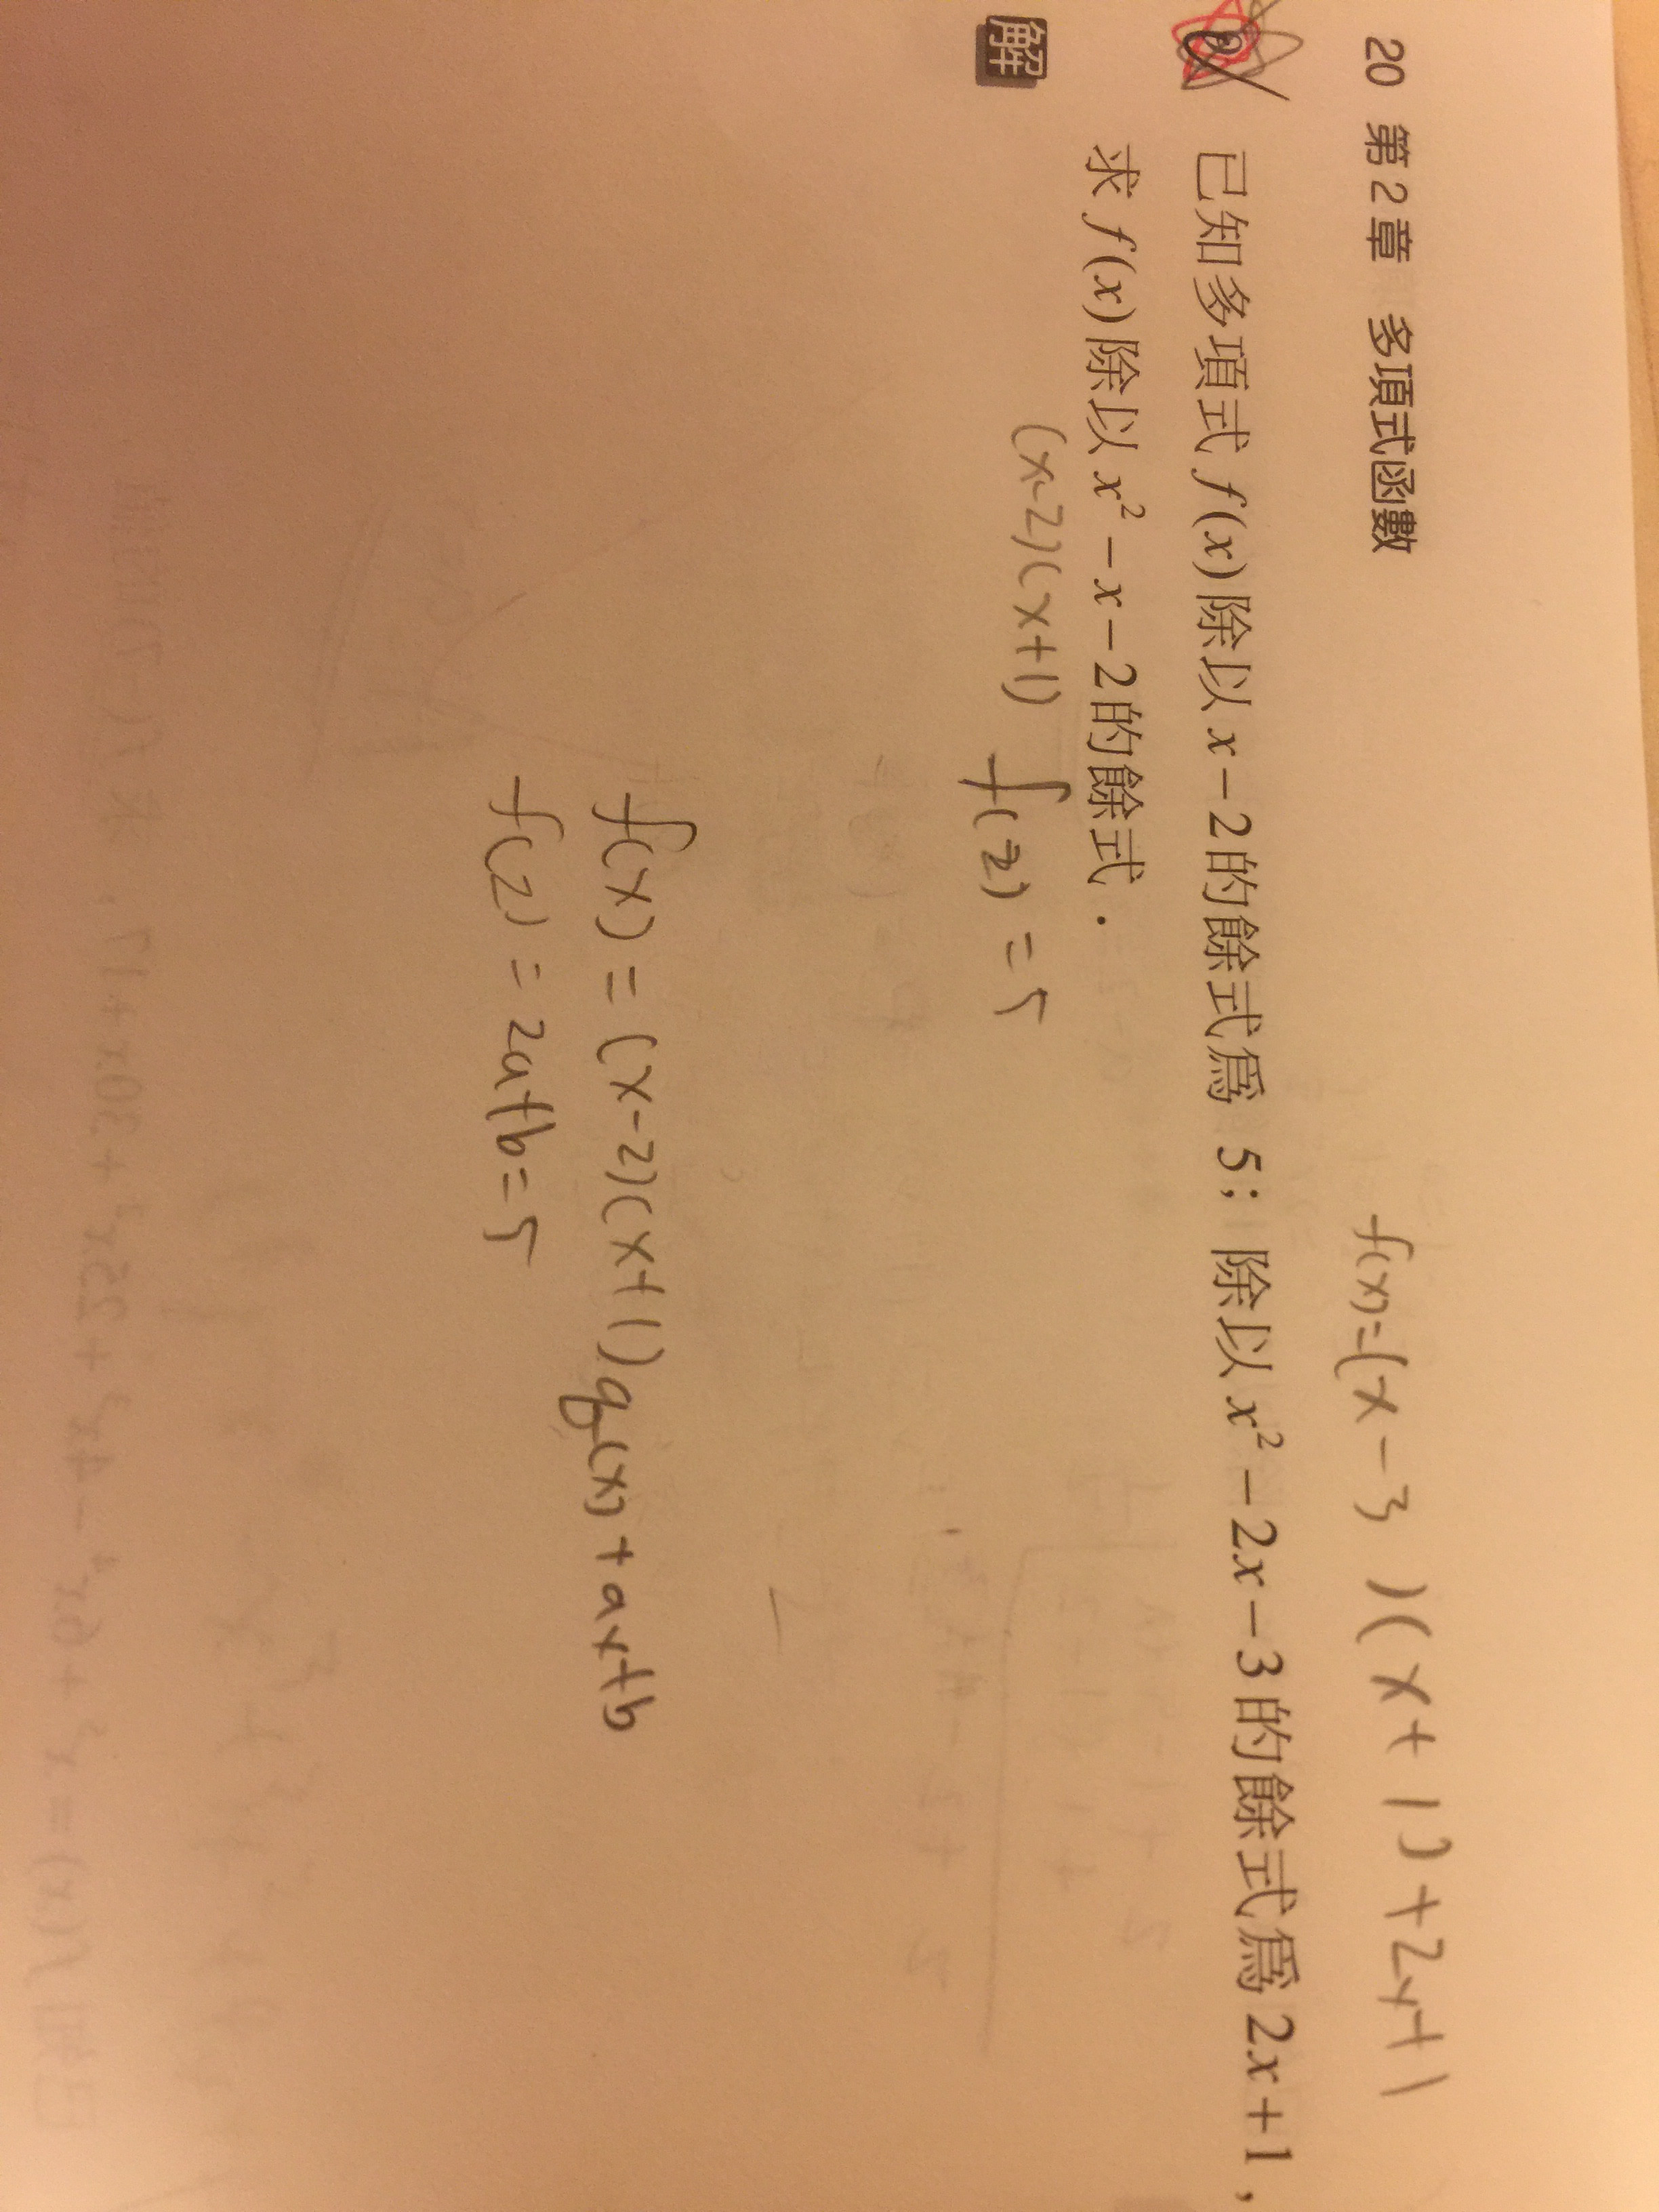 20 第2章 多項式函數
f(x)=(x-3)(x+1)+2x+1
已知多項式 f(x) 除以 x-2 的餘式為 5；除以 x²-2x-3 的餘式為 2x+1，
求 f(x) 除以 x²-x-2 的餘式．
(x-2)(x+1)
解
f(2)=5
f(x)=(x-2)(x+1)q(x)+ax+b
f(2)=2a+b=5